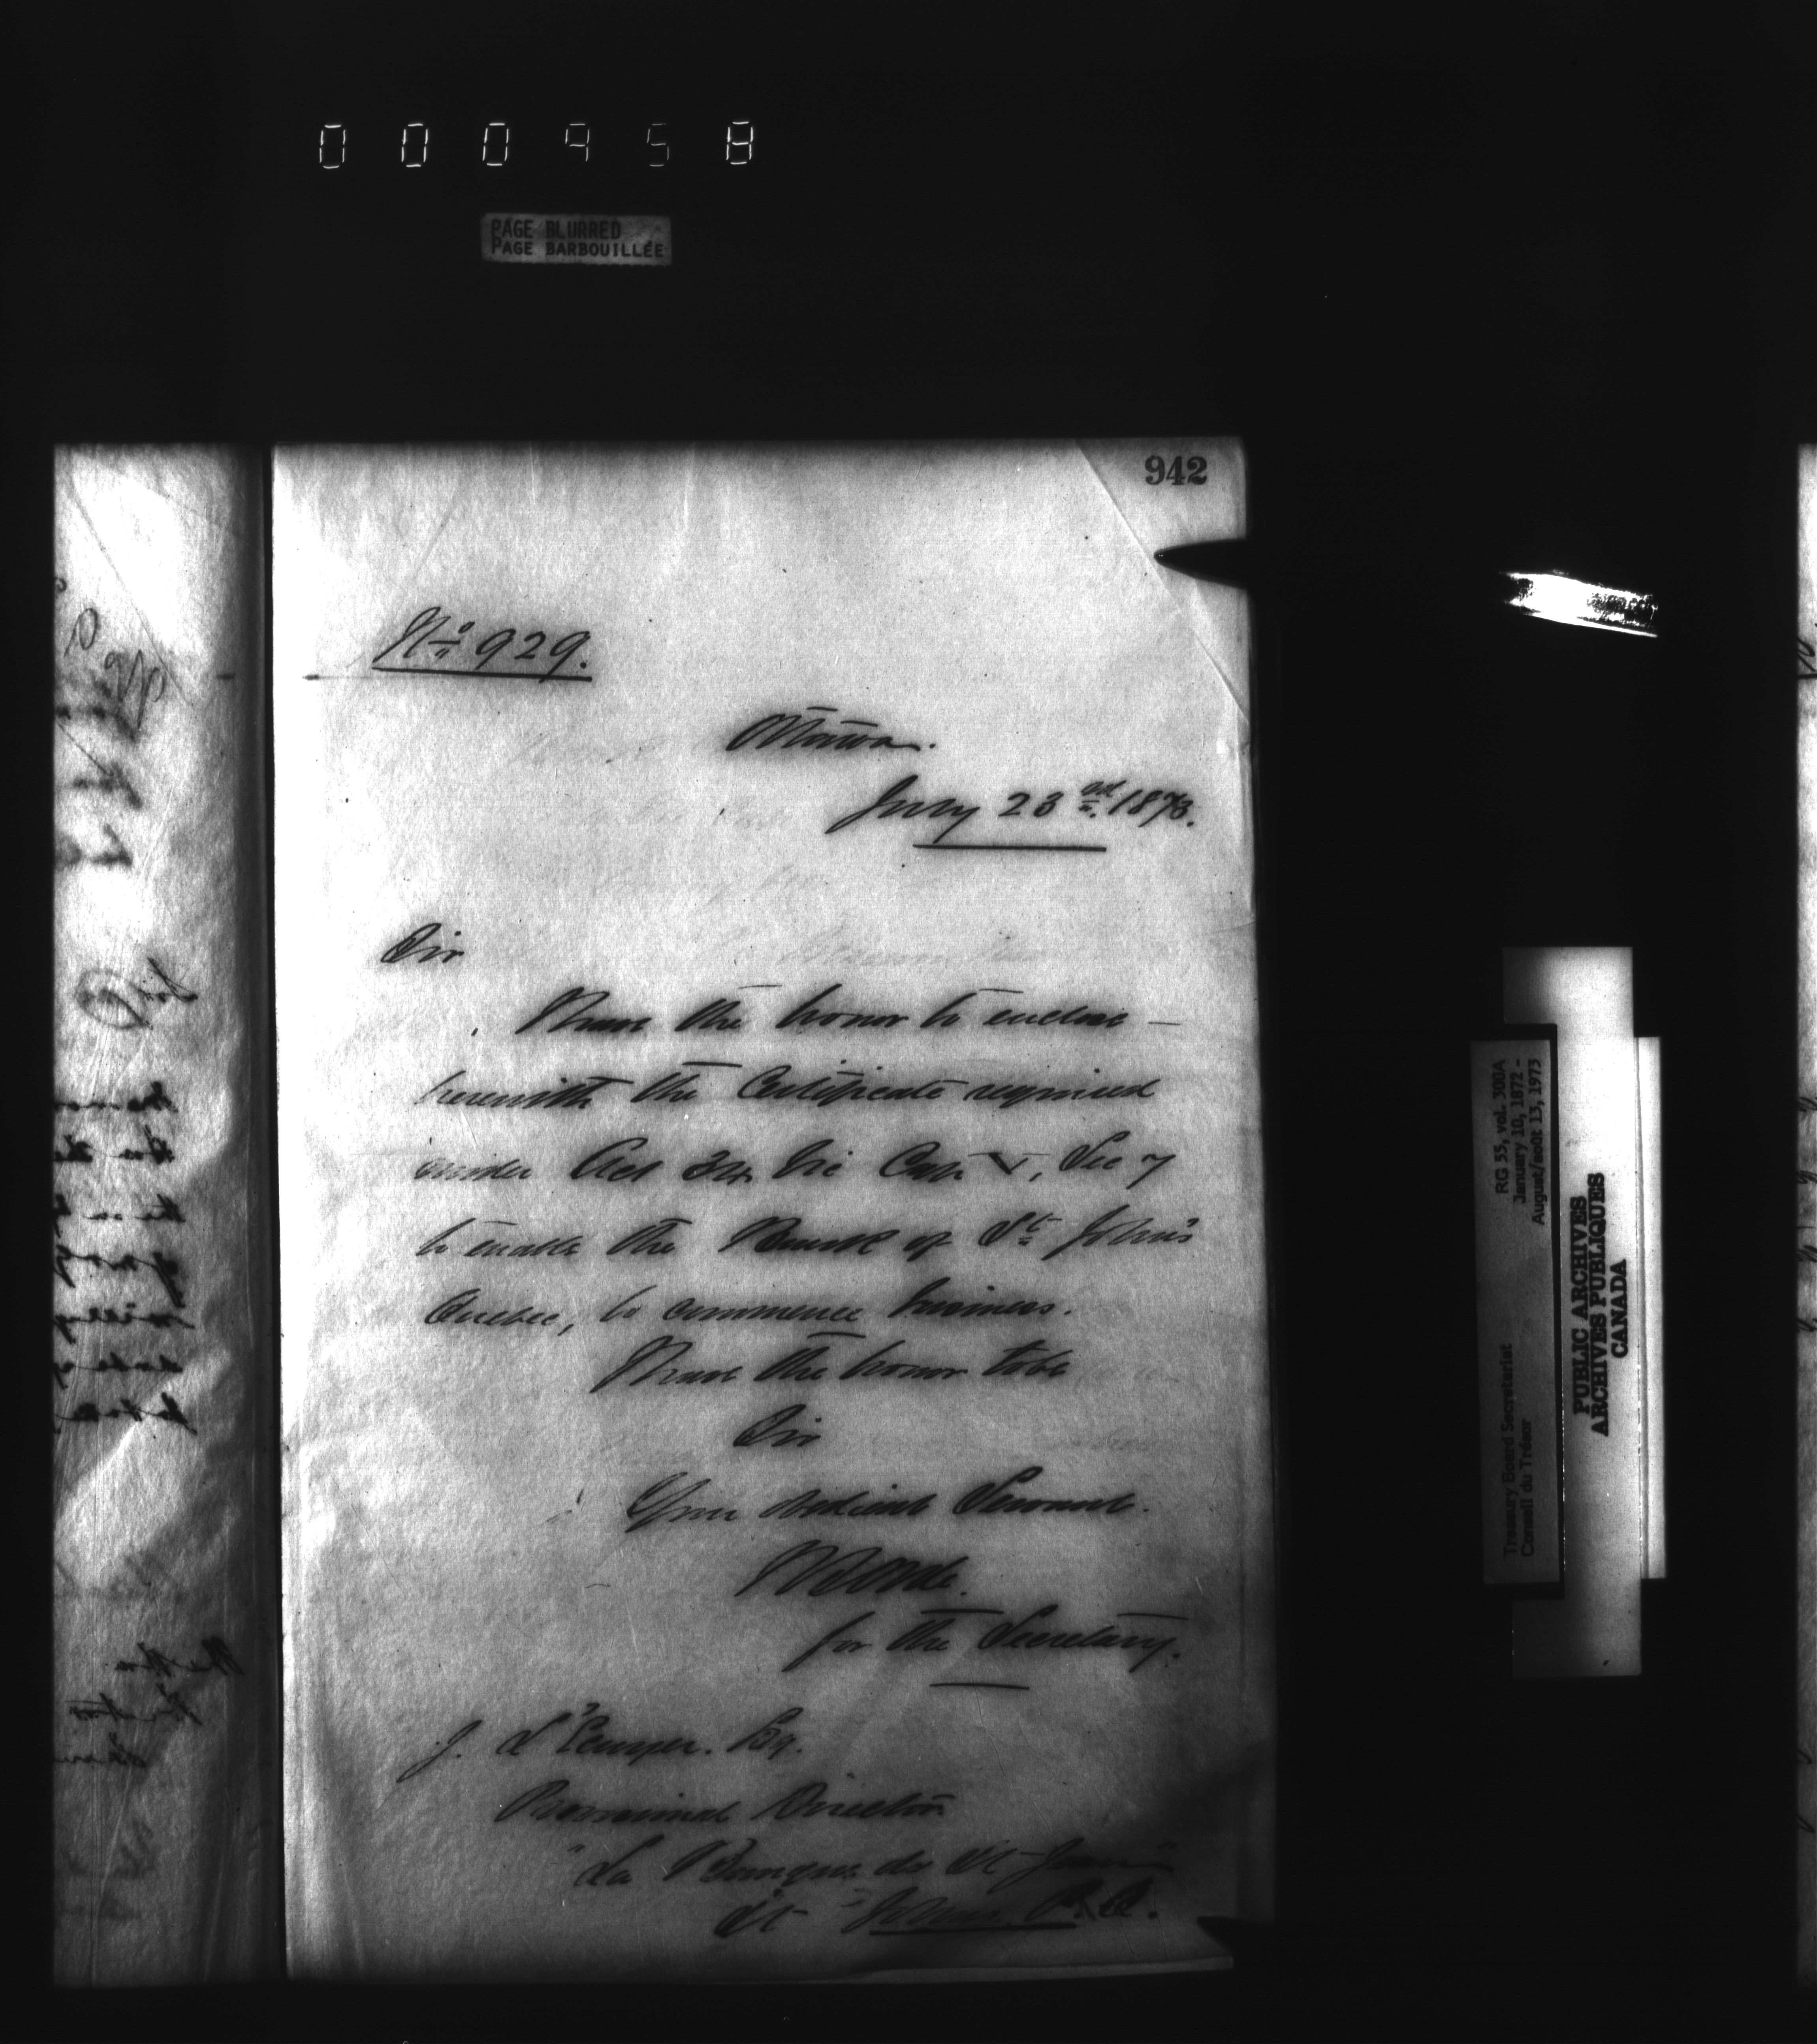 000958
PAGE BLURRED
PAGE BARBOUILLÉE
942
No 929.
Ottawa.
July 23rd 1873.
Sir
I have the honor to enclose
herewith the Certificate required
under Act 34 Vic Cap V, Sec 7
to enable the Bank of St John's
Quebec, to commence business.
I have the honor to be
Sir
Your obedient Servant.
for the Secretary.
J. L'Ecuyer. Esq.
Provisional Director
"La Banque de St Jean"
St Johns P.Q.
RG 55, vol. 300A
January 10, 1872 -
August/août 13, 1973
Treasury Board Secretariat
Conseil du Trésor
PUBLIC ARCHIVES
ARCHIVES PUBLIQUES
CANADA